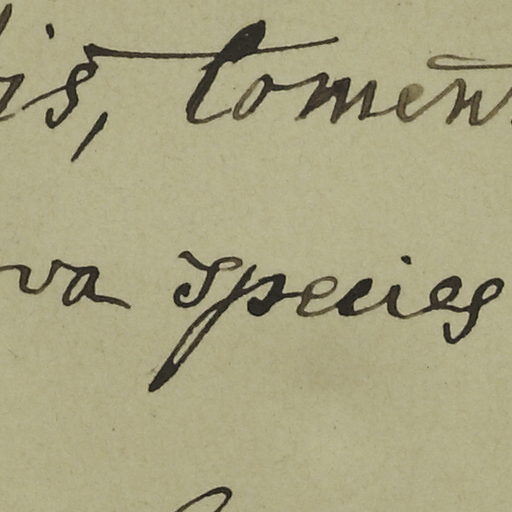 is, toment
va species